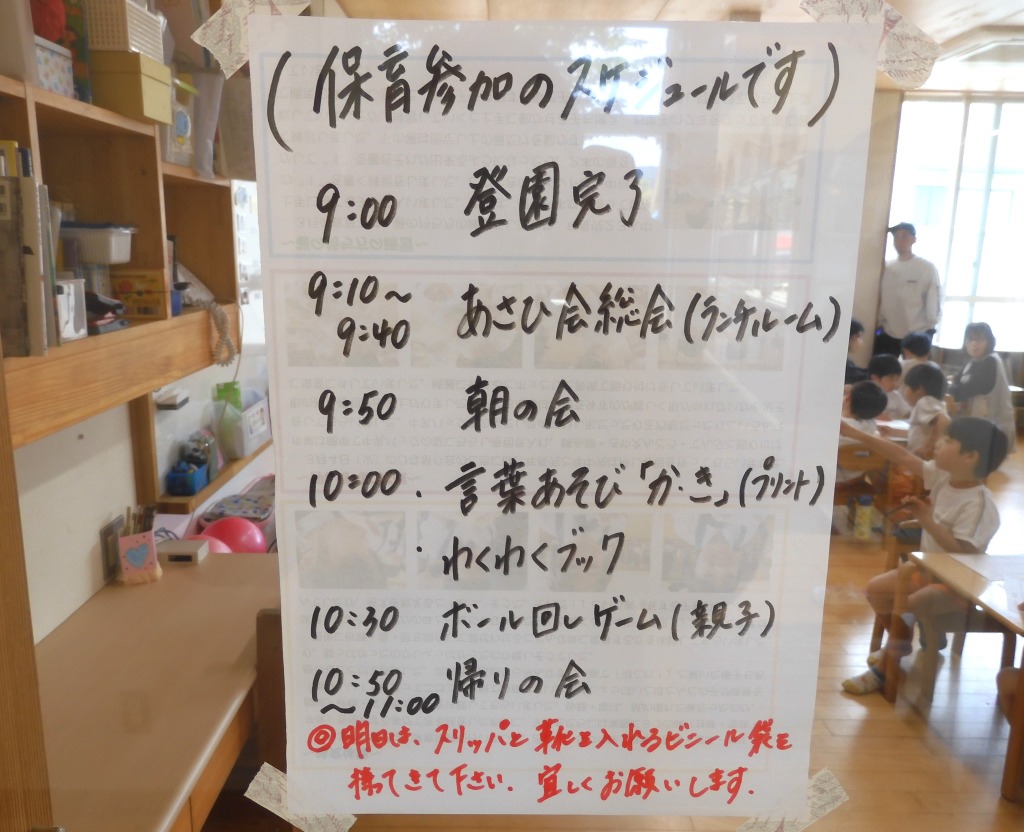 (保育参加のスケジュールです)
9:00 登園完了
9:10～
9:40 あさひ会総会(ランチルーム)
9:50 朝の会
10:00 ・言葉あそび「か・き」(プリント)
・わくわくブック
10:30 ボール回しゲーム(親子)
10:50
～11:00 帰りの会
◎明日は、スリッパと靴を入れるビニール袋を
持ってきて下さい。宜しくお願いします。